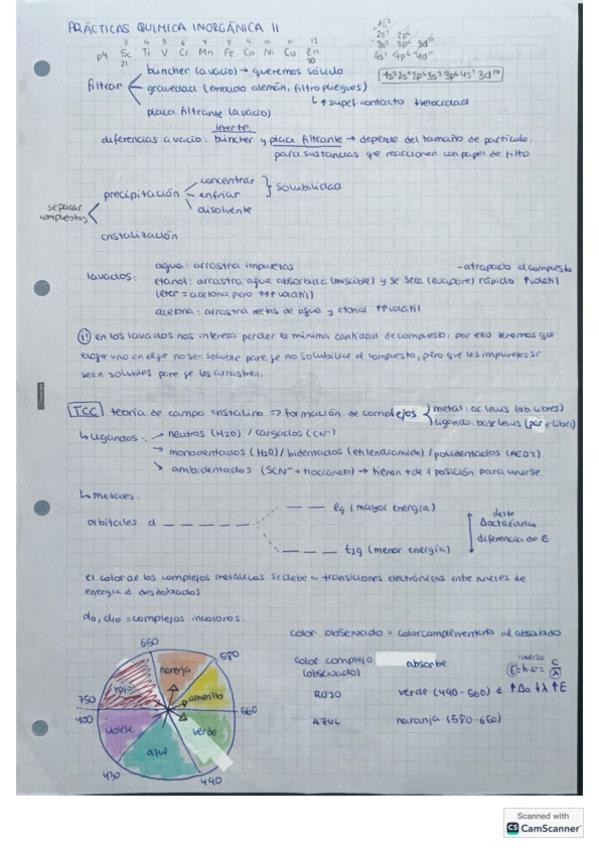 PRÁCTICAS QUIMICA INORGÁNICA II
3 4 5 6 7 8 9 10 11 12
p4 Sc Ti V Cr Mn Fe Co Ni Cu Zn
21 30
1s²
2s² 2p⁶
3s² 3p⁶ 3d¹⁰
4s² 4p⁶ 4d¹⁰
1s² 2s² 2p⁶ 3s² 3p⁶ 4s² 3d¹⁰
filtrar
büncher (a vacío) → queremos sólido
gravedad (embudo alemán, filtro pliegues)
↳ ↑ supef contacto ↓ velocidad
placa filtrante (a vacío)
inerte
diferencias a vacío: büncher y placa filtrante → depende del tamaño de partícula.
para sustancias que reaccionen con papel de filto
separar compuestos
precipitación
concentrar
enfriar
disolvente
} solubilidad
cristalización
lavados:
agua: arrastra impurezas
- atrapado el compuesto
etanol: arrastra agua absorbida (miscible) y se seca (evapore) rápido ↑volátil
(eter = acetona, pero ↑↑↑ volátil)
acetona: arrastra restos de agua y etanol ↑↑volátil
(!!) en los lavados nos interesa perder la mínima cantidad de compuesto, por eso tenemos que
escoger uno en el qe no sea soluble para qe no solubilice el compuesto, pero que las impurezas sí
sean solubles para qe las arrastren.
TCC teoría de campo cristalino => formación de complejos
metal: ac lewis (ob. libres)
ligando: base lewis (par e libre)
↳ Ligandos: → neutros (H₂O) / cargados (CN⁻)
→ monodentados (H₂O) / bidentados (etilendiamida) / polidentados (AEDT)
→ ambidentados (SCN⁻ tiocianato) → tienen + de 1 posición para unirse.
↳ metales.
orbitales d
eg (mayor energía)
t2g (menor energía)
delta
Δoctaédrico
diferencia de E
el color de los complejos metálicos se debe a transiciones electrónicas entre niveles de
energía d desdoblados
d0, d10 = complejos incoloros.
color observado = color complementario al absorbido
color complejo (observado)
absorbe
inverso
E = h·υ = c/λ
ROJO
verde (490-560)
↑Δo ↓λ ↑E
AZUL
naranja (580-650)
650
580
560
490
430
400
750
naranja
amarillo
verde
azul
violeta
rojo
Scanned with
CS CamScanner